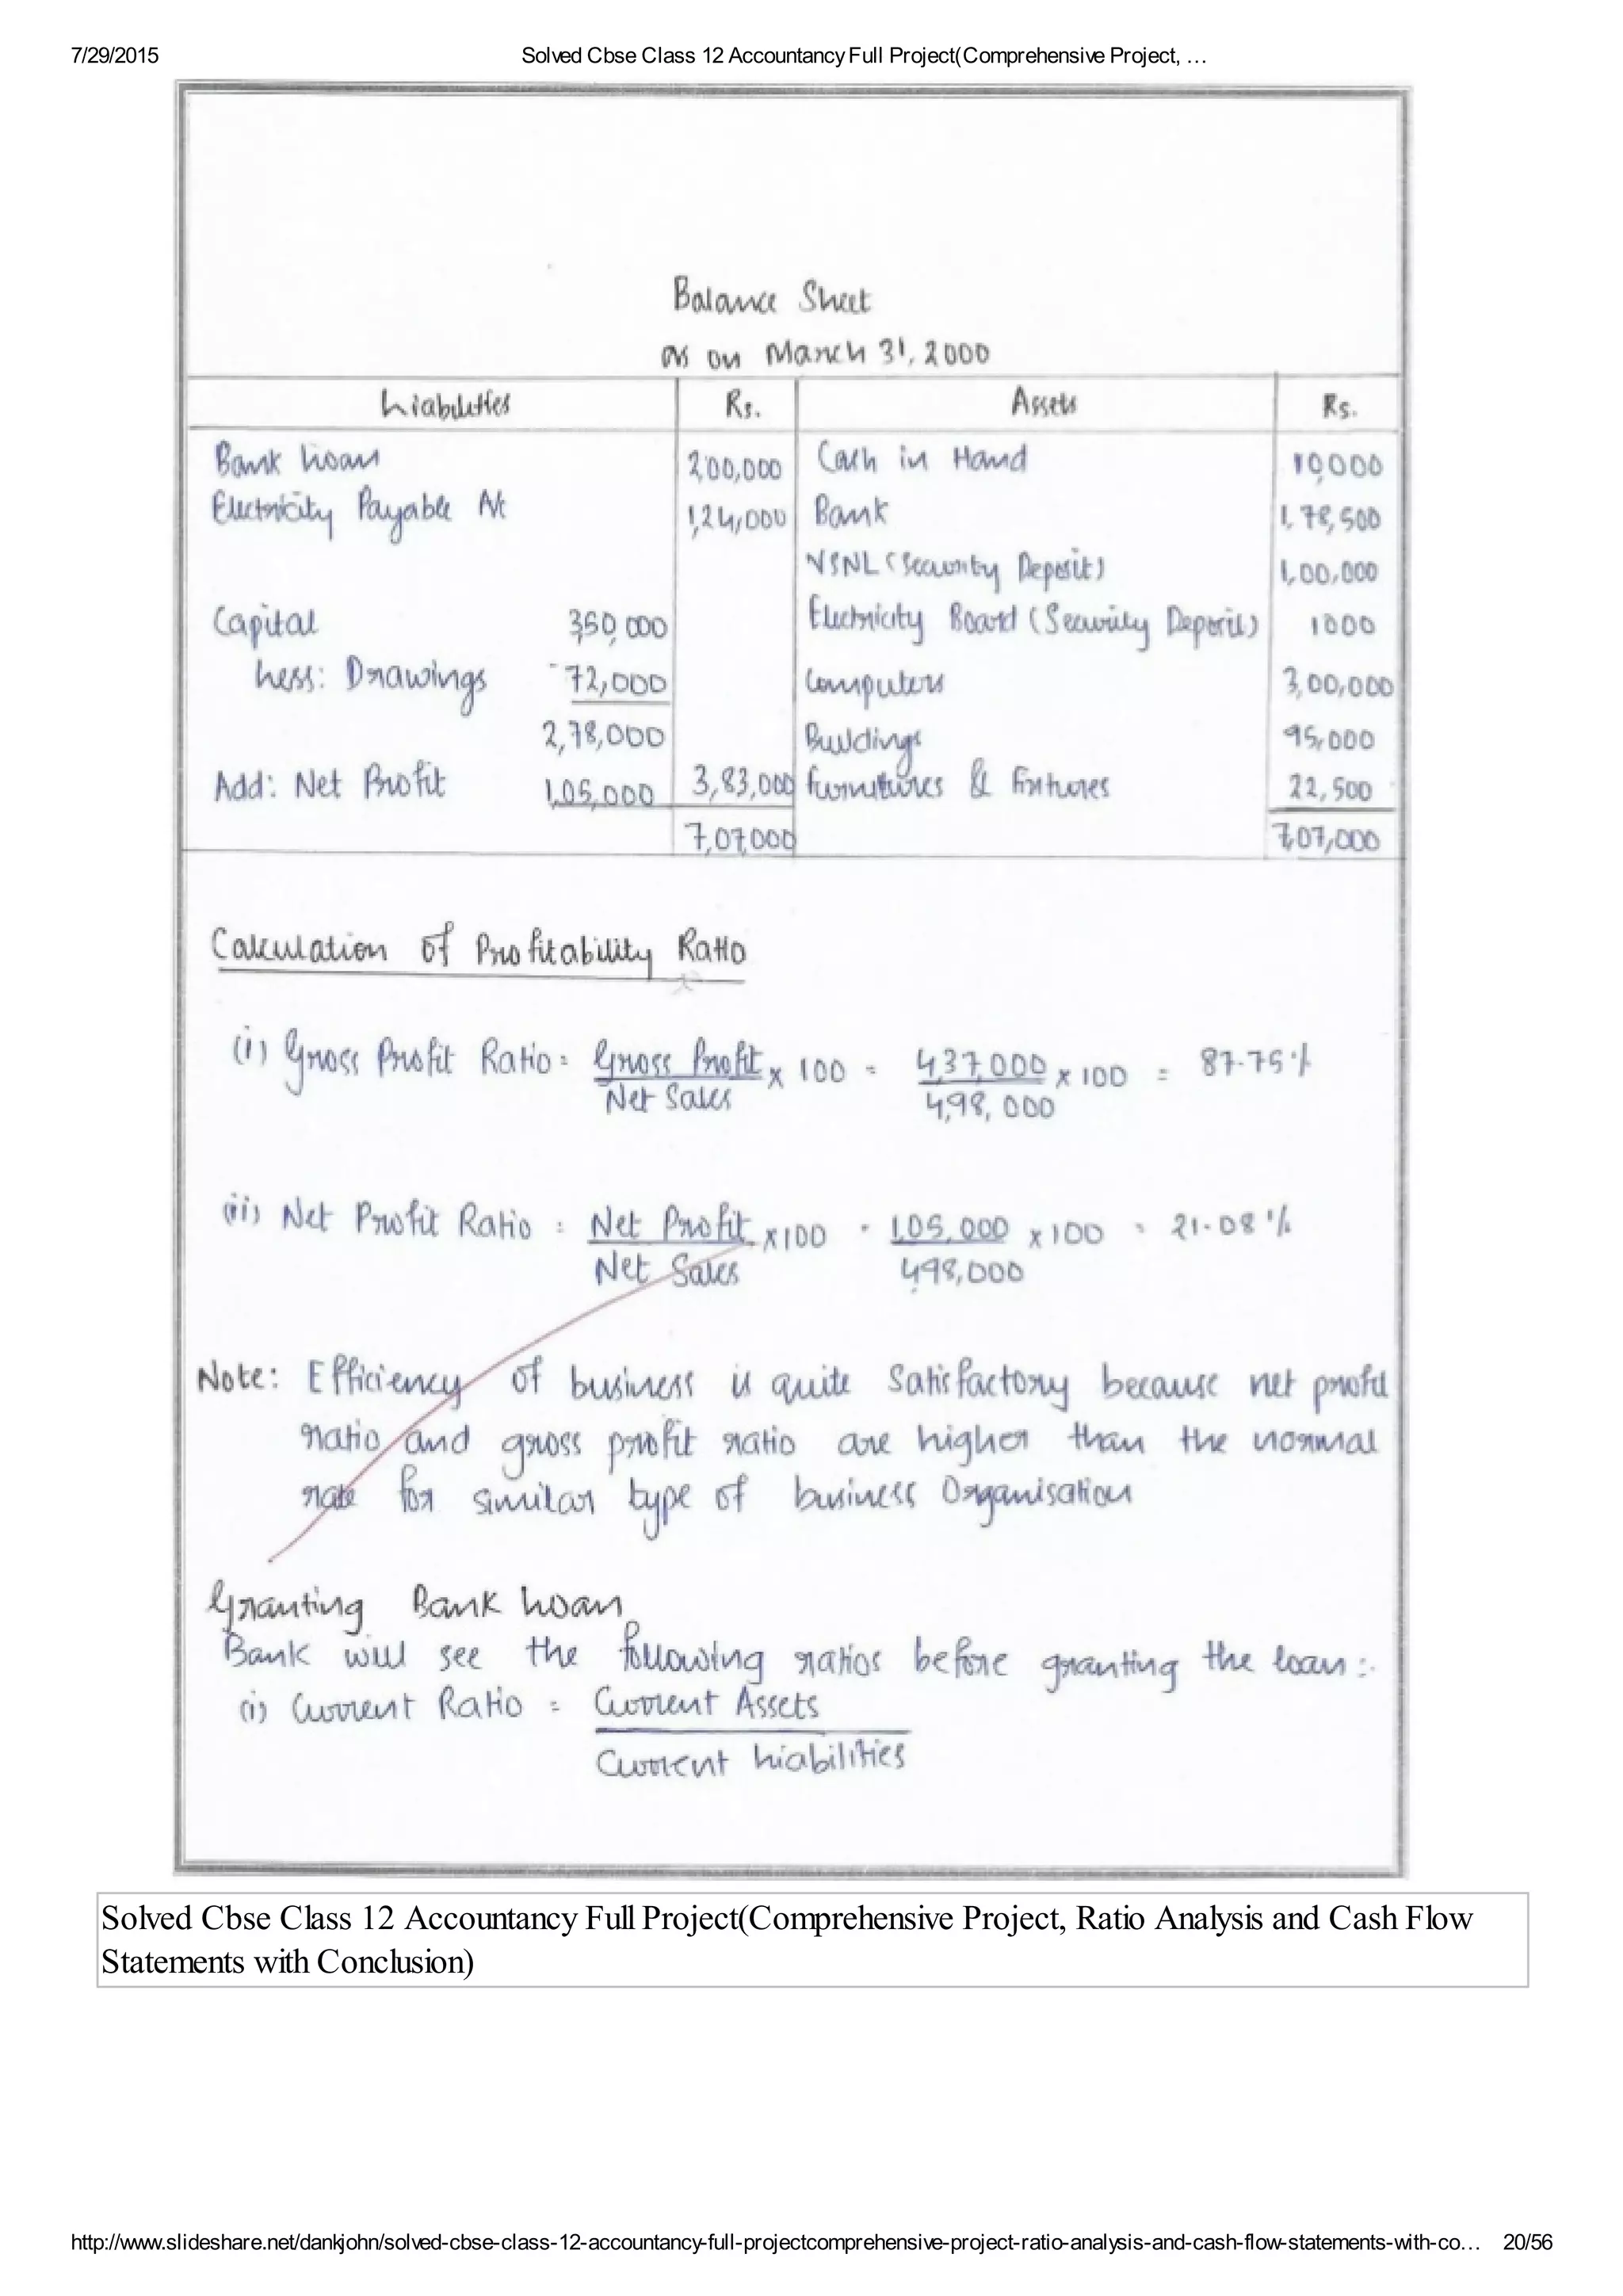 7/29/2015 Solved Cbse Class 12 Accountancy Full Project(Comprehensive Project, …
Balance Sheet
as on March 31, 2000
Liabilities Rs. Assets Rs.
Bank Loan 2,00,000 Cash in Hand 10,000
Electricity Payable A/c 1,24,000 Bank 1,78,500
VSNL (Security Deposit) 1,00,000
Capital 3,50,000 Electricity Board (Security Deposit) 1000
Less: Drawings -72,000 Computers 3,00,000
2,78,000 Buildings 95,000
Add: Net Profit 1,05,000 3,83,000 Furnitures & Fixtures 22,500
7,07,000 7,07,000
Calculation of Profitability Ratio
(i) Gross Profit Ratio = Gross Profit x 100 = 4,37,000 x 100 = 87.75 %
Net Sales 4,98,000
(ii) Net Profit Ratio = Net Profit x100 = 1,05,000 x 100 = 21.08 %
Net Sales 4,98,000
Note: Efficiency of business is quite Satisfactory because net profit
ratio and gross profit ratio are higher than the normal
rate for similar type of business Organisation
Granting Bank Loan
Bank will see the following ratios before granting the loan :-
(i) Current Ratio = Current Assets
Current Liabilities
Solved Cbse Class 12 Accountancy Full Project(Comprehensive Project, Ratio Analysis and Cash Flow
Statements with Conclusion)
http://www.slideshare.net/dankjohn/solved-cbse-class-12-accountancy-full-projectcomprehensive-project-ratio-analysis-and-cash-flow-statements-with-co… 20/56